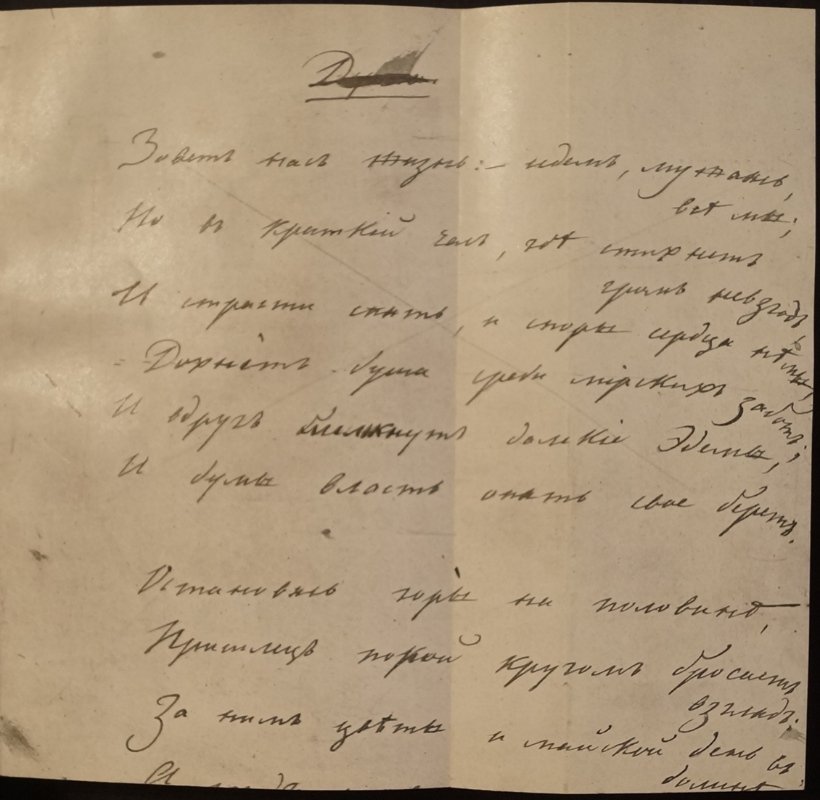 Зоветъ насъ жизнь: – идемъ, мужаясь,
всѣ мы;
Но въ краткій часъ, гдѣ стихнетъ
громъ невзгодъ,
И страсти спятъ, и споры сердца нѣмы,
Дохнетъ душа среди мірскихъ заботъ,
И вдругъ мелькнутъ далекіе Эдемы,
И думы власть опять свое беретъ.
Остановясь горы на половинѣ,
Пришлецъ порой кругомъ бросаетъ
взглядъ:
За нимъ цвѣты и майской день въ
долинѣ